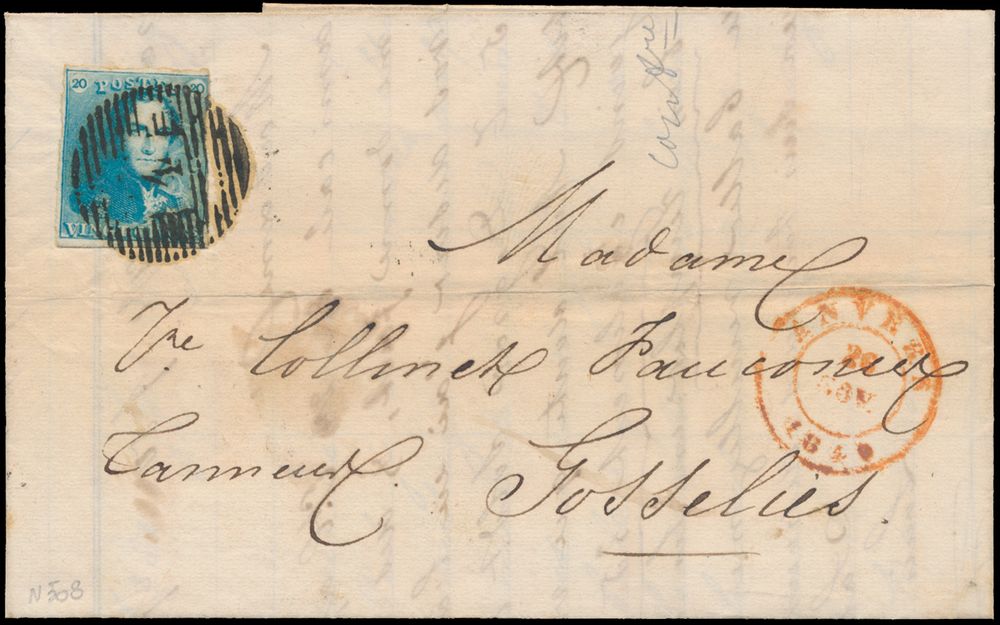 20 POSTES 20
VIN
Madame
Vve Collinet Fauconier
Tanneur
Gosselies.
ANVERS
26
NOV.
1849
N 508